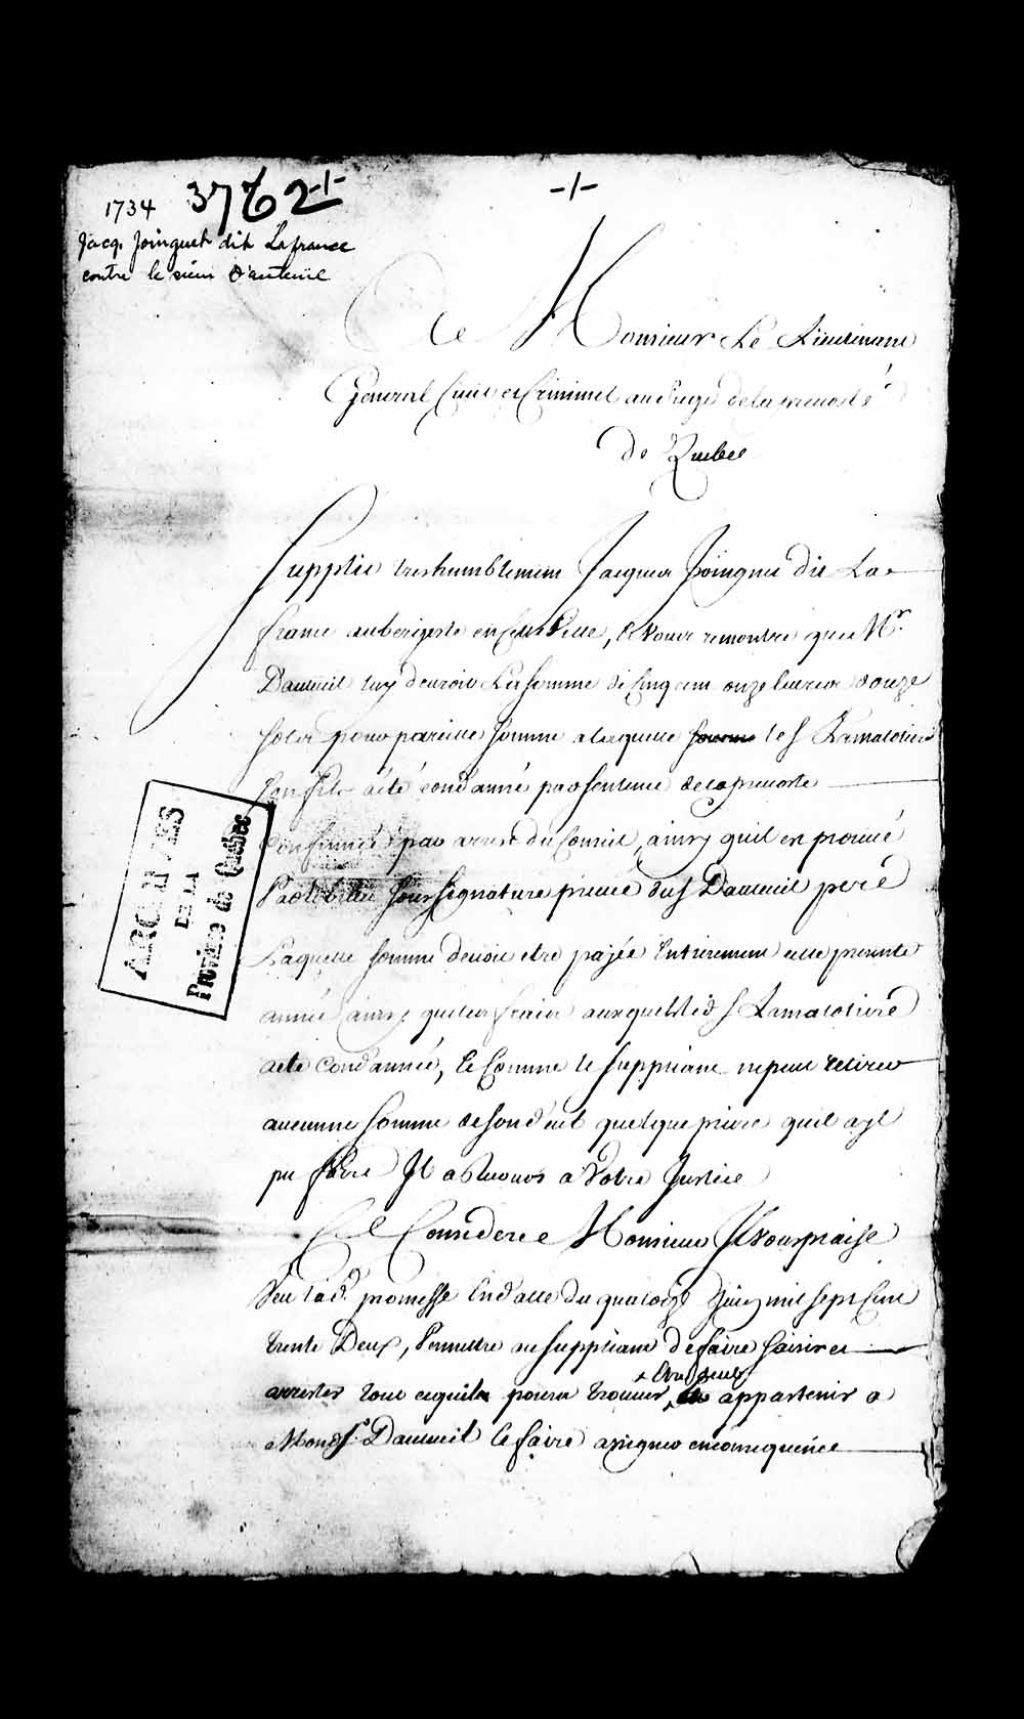 -1-
1734 3762 -1-
Jacq. Joinguet dit Lafrance
contre le sieur D'auteuil
Monsieur Le Lieutenant
General Civil et Criminel au Siege de la prevosté
de Quebec
Supplie tres humblement Jacques Joingnier dit La
france aubergiste en cette Ville, Et Vous remontre que Mr.
Dauteuil luy devroit La somme de Cinq cent onze livres douze
sols pour pareille somme a laquelle le s.
son fils a été condamné par sentence de la prevosté
confirmée par arrest du Conseil, ainsy quil en prouvé
par billet sous signature privée du s. Dauteuil pere
Laquelle somme devoit etre payée Entierement cette presente
année ainsy que les frais auxquels led s
a eté condamné, Et Comme le suppliant ne peut retirer
aucune somme de son deut quelque priere quil ayt
pu faire Il a Recours a Votre Justice
Ce Consideré Monsieur Il Vous plaise
Veu lad. promesse En datte du quatorze mil sept Cent
trente Deux, Permettre au suppliant de faire saisir et
arrester tout ce quil pourra trouver, appartenir a
mond s. Dauteuil Le faire assigner en consequence
ARCHIVES
DE LA
Province de Québec